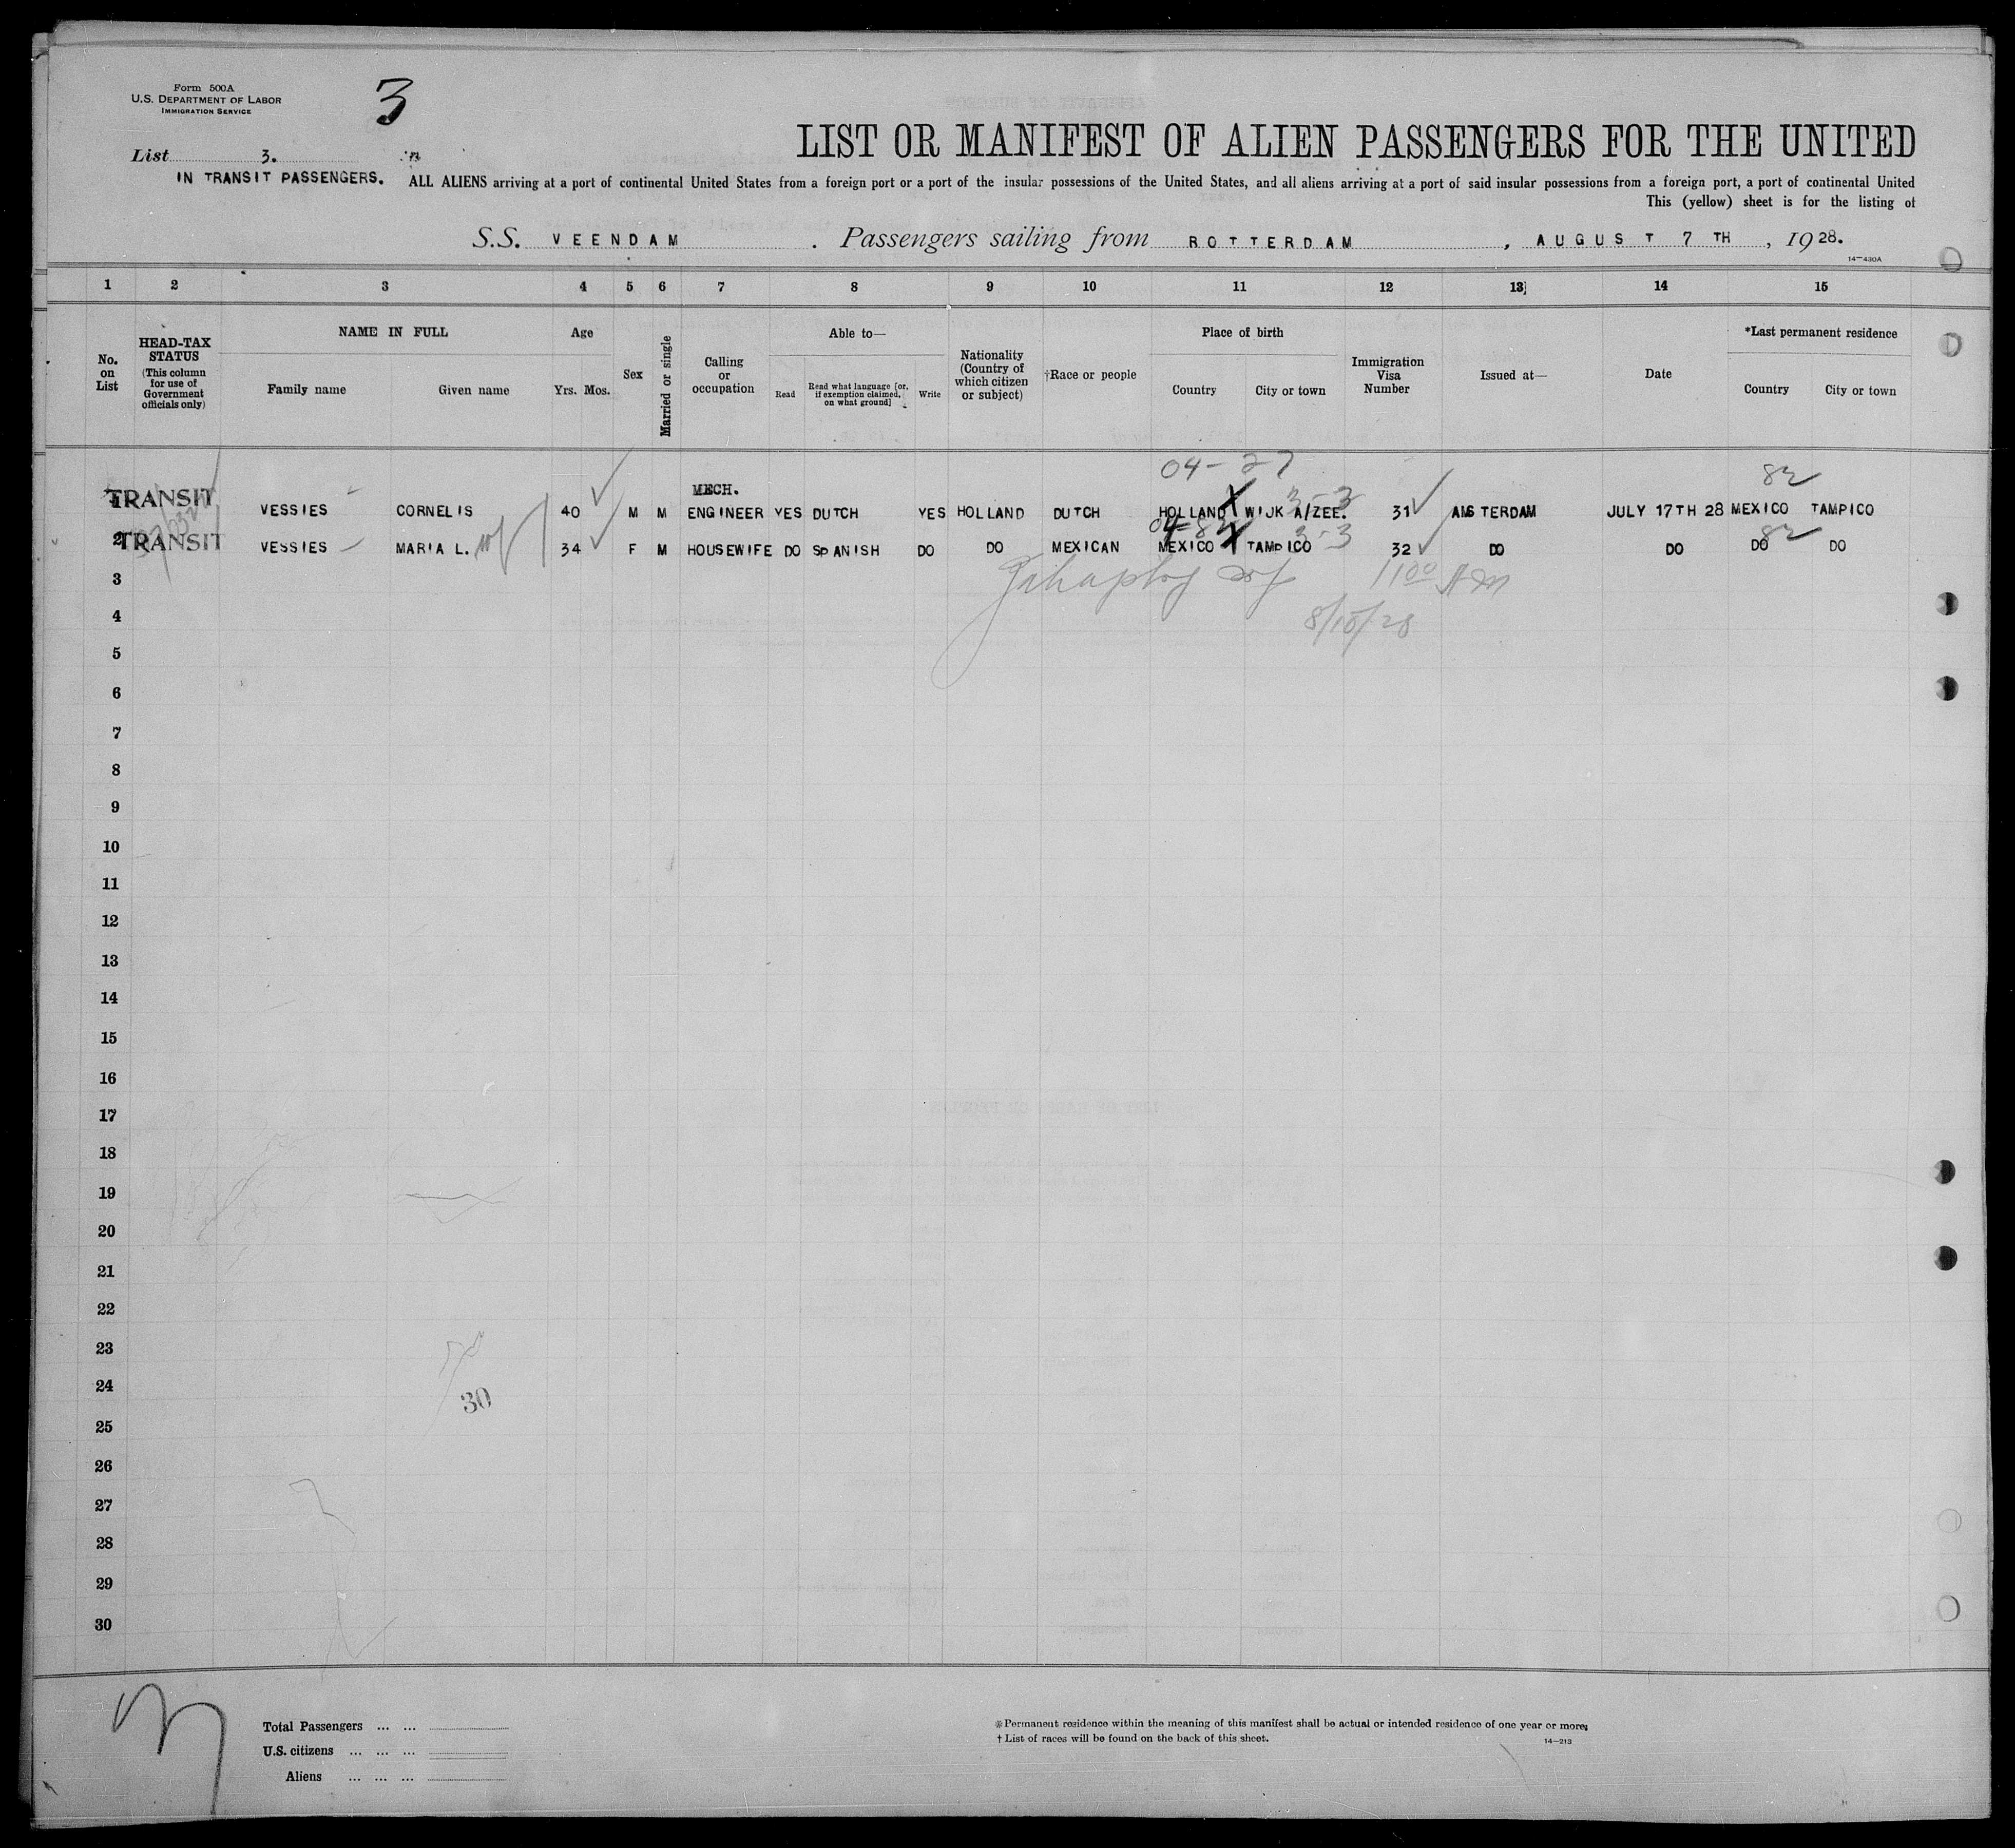 Form 500A
U.S. DEPARTMENT OF LABOR
IMMIGRATION SERVICE
3
LIST OR MANIFEST OF ALIEN PASSENGERS FOR THE UNITED
List 3.
IN TRANSIT PASSENGERS.
ALL ALIENS arriving at a port of continental United States from a foreign port or a port of the insular possessions of the United States, and all aliens arriving at a port of said insular possessions from a foreign port, a port of continental United
This (yellow) sheet is for the listing of
S.S. VEENDAM. Passengers sailing from ROTTERDAM, AUGUST 7 TH, 1928.
14—430A
1 2 3 4 5 6 7 8 9 10 11 12 13 14 15
No. on List
HEAD-TAX STATUS
(This column for use of Government officials only)
NAME IN FULL
Family name Given name
Age
Yrs. Mos.
Sex
Married or single
Calling or occupation
Able to—
Read
Read what language [or, if exemption claimed, on what ground]
Write
Nationality (Country of which citizen or subject)
†Race or people
Place of birth
Country City or town
Immigration Visa Number
Issued at—
Date
*Last permanent residence
Country City or town
04-27
82
MECH.
1 TRANSIT VESSIES CORNELIS 40 M M ENGINEER YES DUTCH YES HOLLAND DUTCH HOLLAND X WIJK A/ZEE. 3-3 31 AMSTERDAM JULY 17TH 28 MEXICO TAMPICO
04-82 82
2 TRANSIT VESSIES MARIA L. 34 F M HOUSEWIFE DO SPANISH DO DO MEXICAN MEXICO X TAMPICO 3-3 32 DO DO DO DO
3
1100 AM
4
8/15/28
5
6
7
8
9
10
11
12
13
14
15
16
17
18
19
20
21
22
23
24
30
25
26
27
28
29
30
Total Passengers ... ...
U.S. citizens ... ... ...
Aliens ... ... ...
*Permanent residence within the meaning of this manifest shall be actual or intended residence of one year or more.
† List of races will be found on the back of this sheet.
14—213